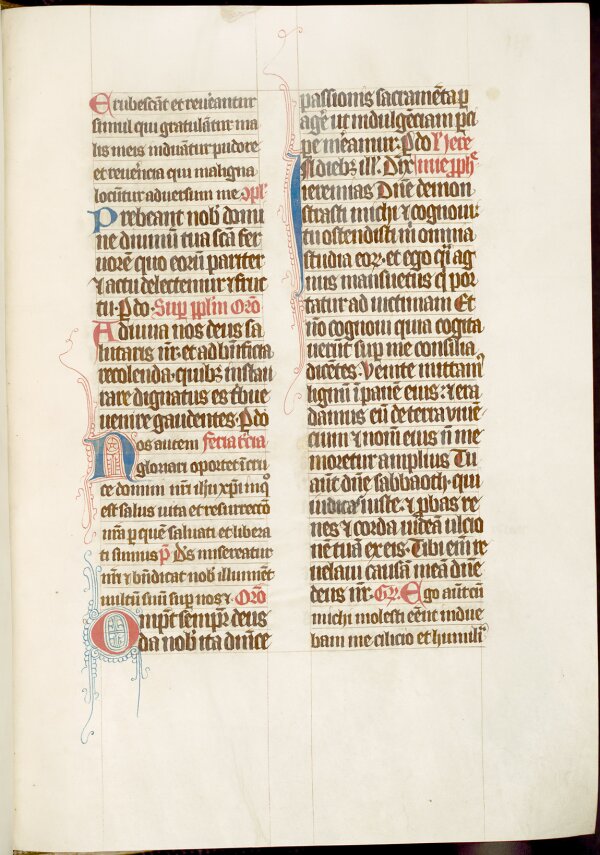 Erubescāt et reuerantur
simul qui gratulātur ma
lis meis induātur pudore
et reuerēcia qui maligna
locūtur aduersum me. 9pl̄
Prebeant nob̄ domi
ne diuinū tua scā fer
uorē quo eorū pariter
⁊ actu delectemur ⁊ fruc
tu. P̱ do. Sup p̱plm̄ Orō
Adiuua nos deus sa
lutaris nr̄. et ad bn̄ficia
recolenda. quibꝫ instau
rare dignatus es t͛bue
uenire gaudentes. P̱ do
Nos autem feria t͛cia
gloriari oportet ī cru
ce domini nr̄i ih̄u xp̄i. in q°
est salus uita et resurrectō
nr̄a. p̱ quē saluati et libera
ti sumus p̄. Ds̄ misereatur
nr̄i ⁊ bn̄dicat nob̄ illuminēt
uultū suū sup nos ⁊. Orō
Omp̄t semp̱r̄ deus
da nob̄ ita dn̄ice
passionis sacramēta p̱
agē ut indulgēciam p̱ci
pe m̄eamur. P̱ do l' iere
In diebꝫ ill'. Dix̄ mie p̱ph̄e
ieremias. Dn̄e demon
strasti michi ⁊ cognoui:
tu ostendisti m̄ omnia
studia eoꝝ. et ego q̄i ag
nus mansuetus q̄i por
tatur ad uictimam Et
nō cognoui quia cogita
uerūt sup me consilia
dicētes. Uenite mittam⁹
lignū ī panē eius: ⁊ era
damus eū de terra uiue
cium ⁊ nomē eius nō me
moretur amplius Tu
autē dn̄e sabbaoth. qui
iudicas iuste. ⁊ p̱bas re
nes ⁊ corda uideā ulcio
nē tuā ex eis. Tibi eīm re
uelaui causā meā dn̄e
deus nr̄. Gr̄. Ego autem
michi molesti eēnt indue
bam me cilicio et humili